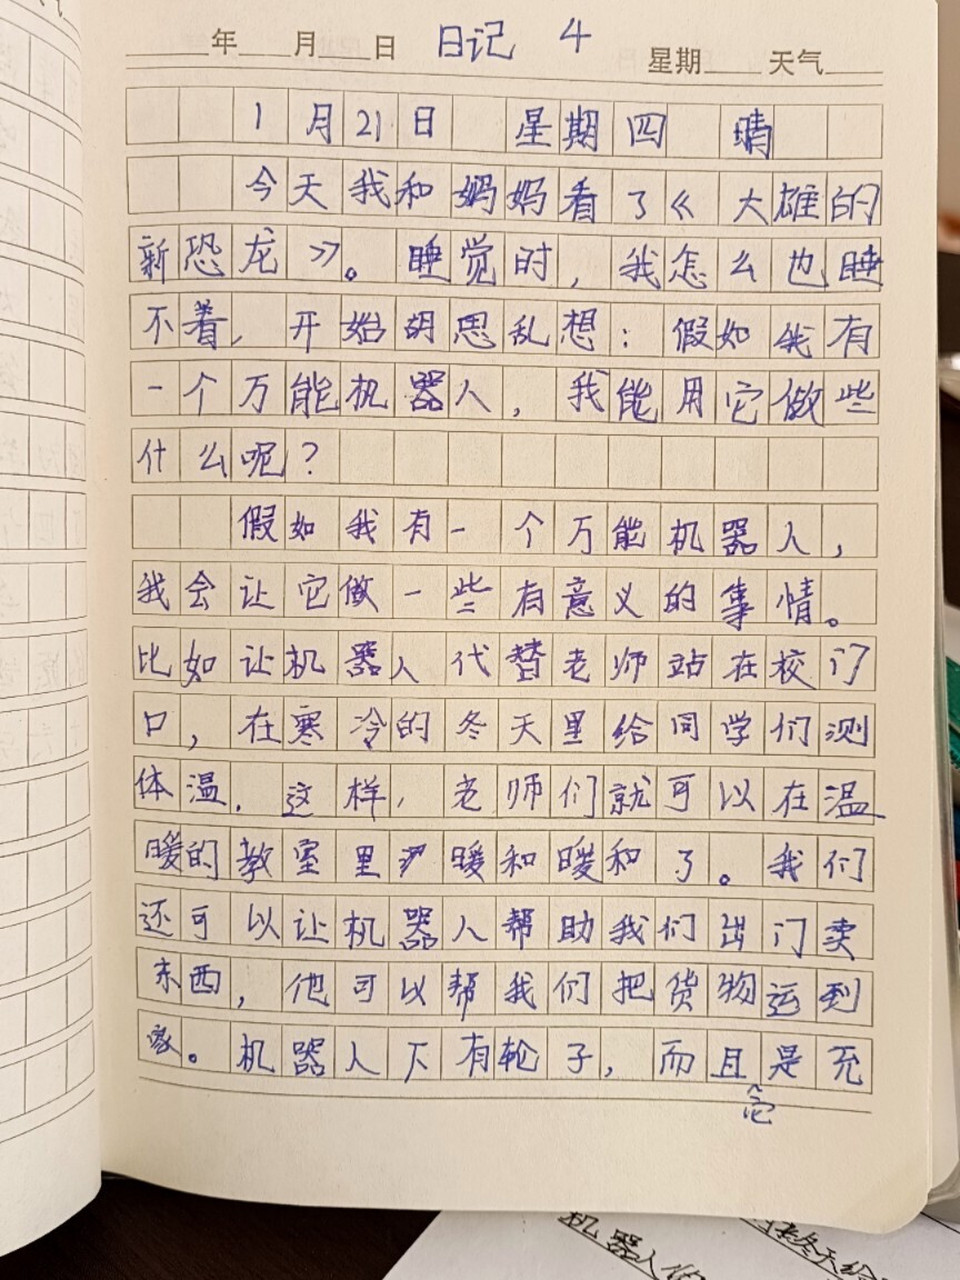 年 月 日 日记 4 星期 天气
1月21日 星期四 晴
今天我和妈妈看了《大雄的
新恐龙》。睡觉时，我怎么也睡
不着，开始胡思乱想：假如我有
一个万能机器人，我能用它做些
什么呢？
假如我有一个万能机器人，
我会让它做一些有意义的事情。
比如让机器人代替老师站在校门
口，在寒冷的冬天里给同学们测
体温，这样，老师们就可以在温
暖的教室里暖和暖和了。我们
还可以让机器人帮助我们出门卖
东西，他可以帮我们把货物运到
家。机器人下有轮子，而且是充
它
机器人
冬天给